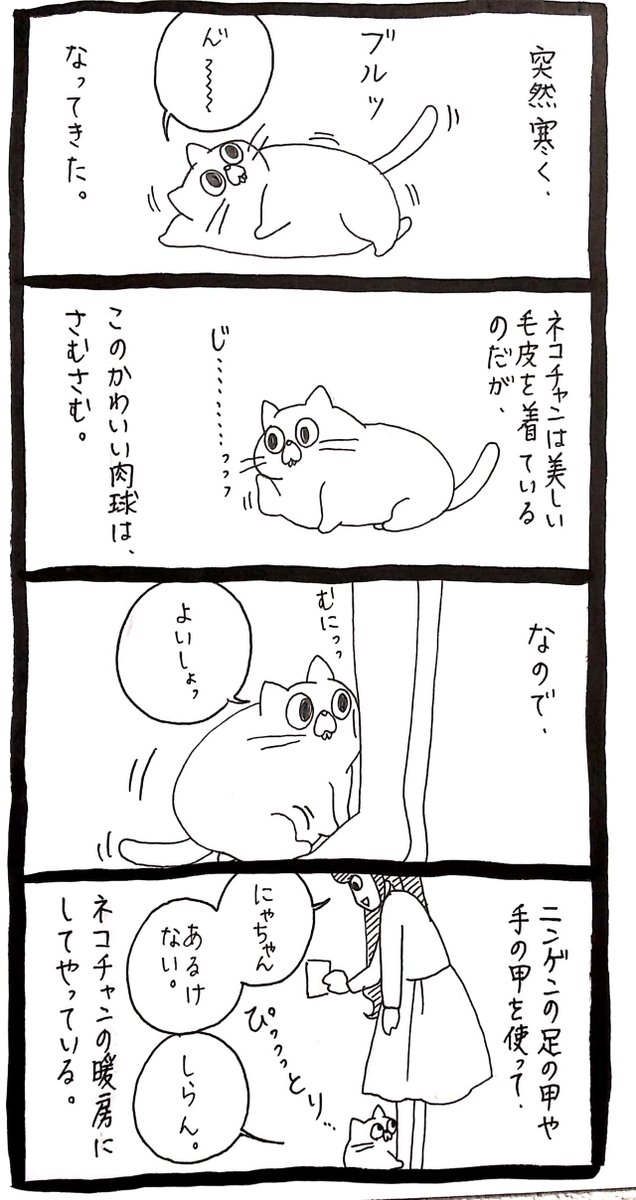 突然寒く、
なってきた。
ブルッ
ん゛〜〜〜〜
ネコチャンは美しい
毛皮を着ている
のだが、
じ………っっっ
このかわいい肉球は、
さむさむ。
なので、
むにっっ
よいしょっ
ニンゲンの足の甲や
手の甲を使って、
にゃちゃん
あるけ
ない。
ぴっっっとり…
しらん。
ネコチャンの暖房に
してやっている。